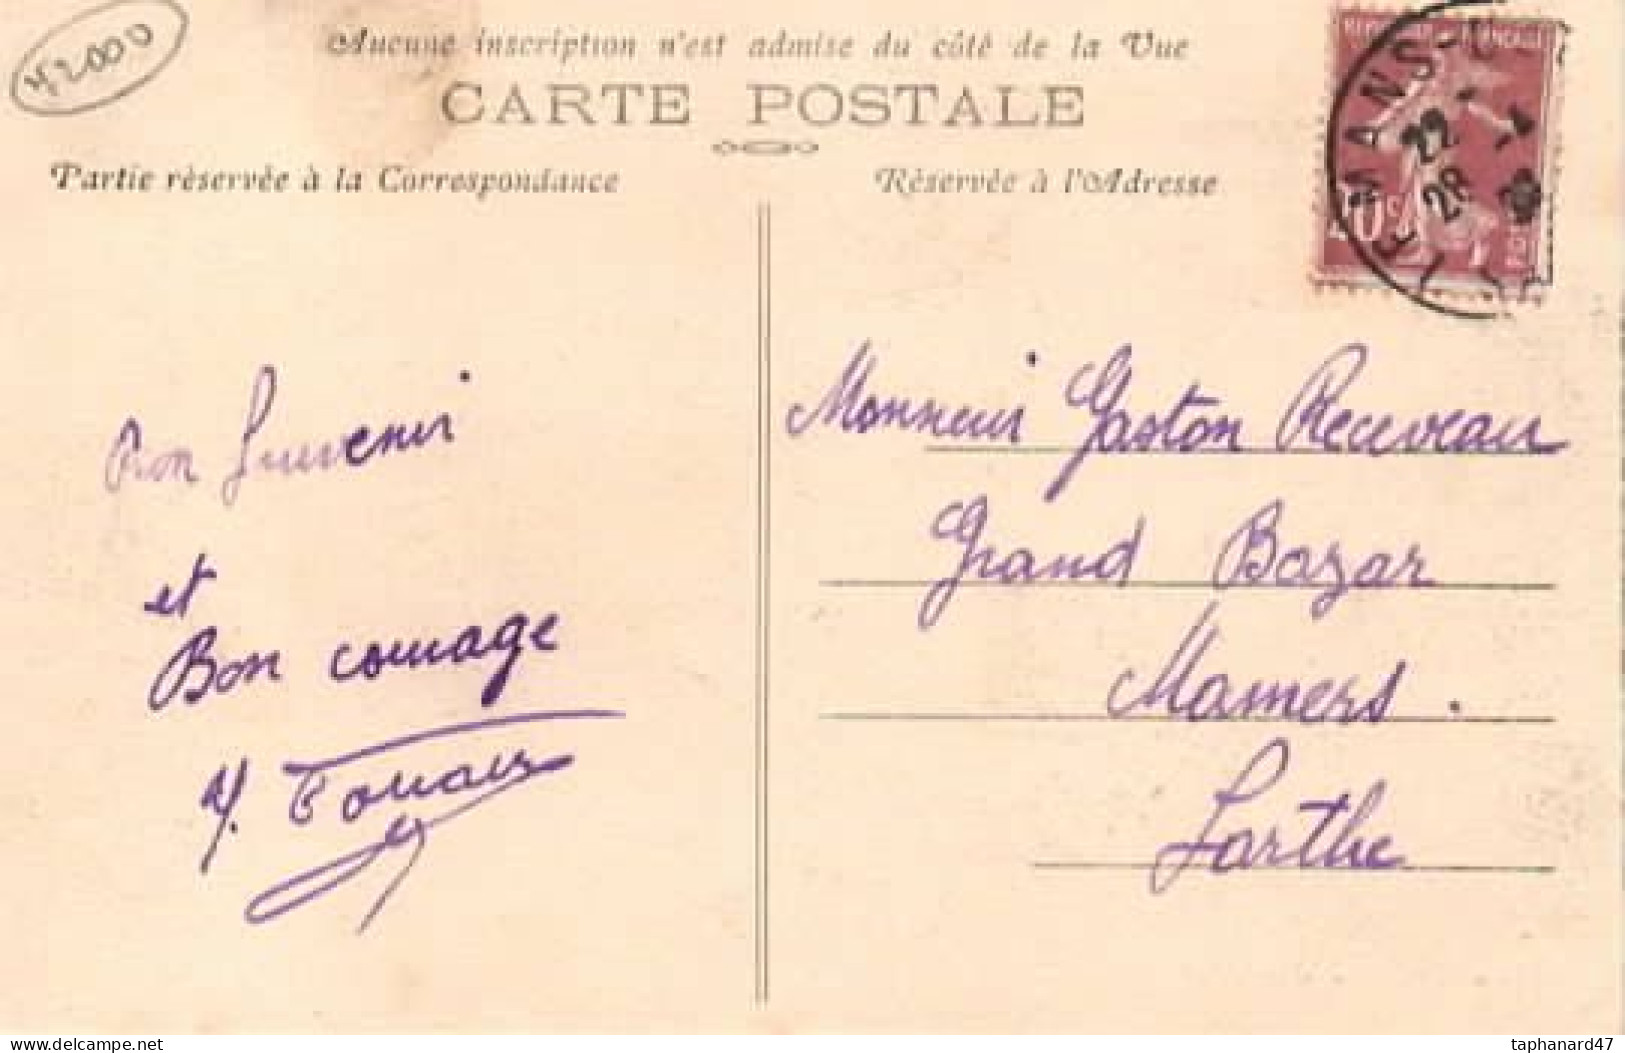 42000
Aucune inscription n'est admise du côté de la Vue
CARTE POSTALE
Partie réservée à la Correspondance
Réservée à l'Adresse
LE MANS
22
28 -4
Bon Souvenir
et
Bon courage
Monsieur Gaston Receveau
Grand Bazar
Mamers.
Sarthe
https://www.delcampe.net
taphanard47